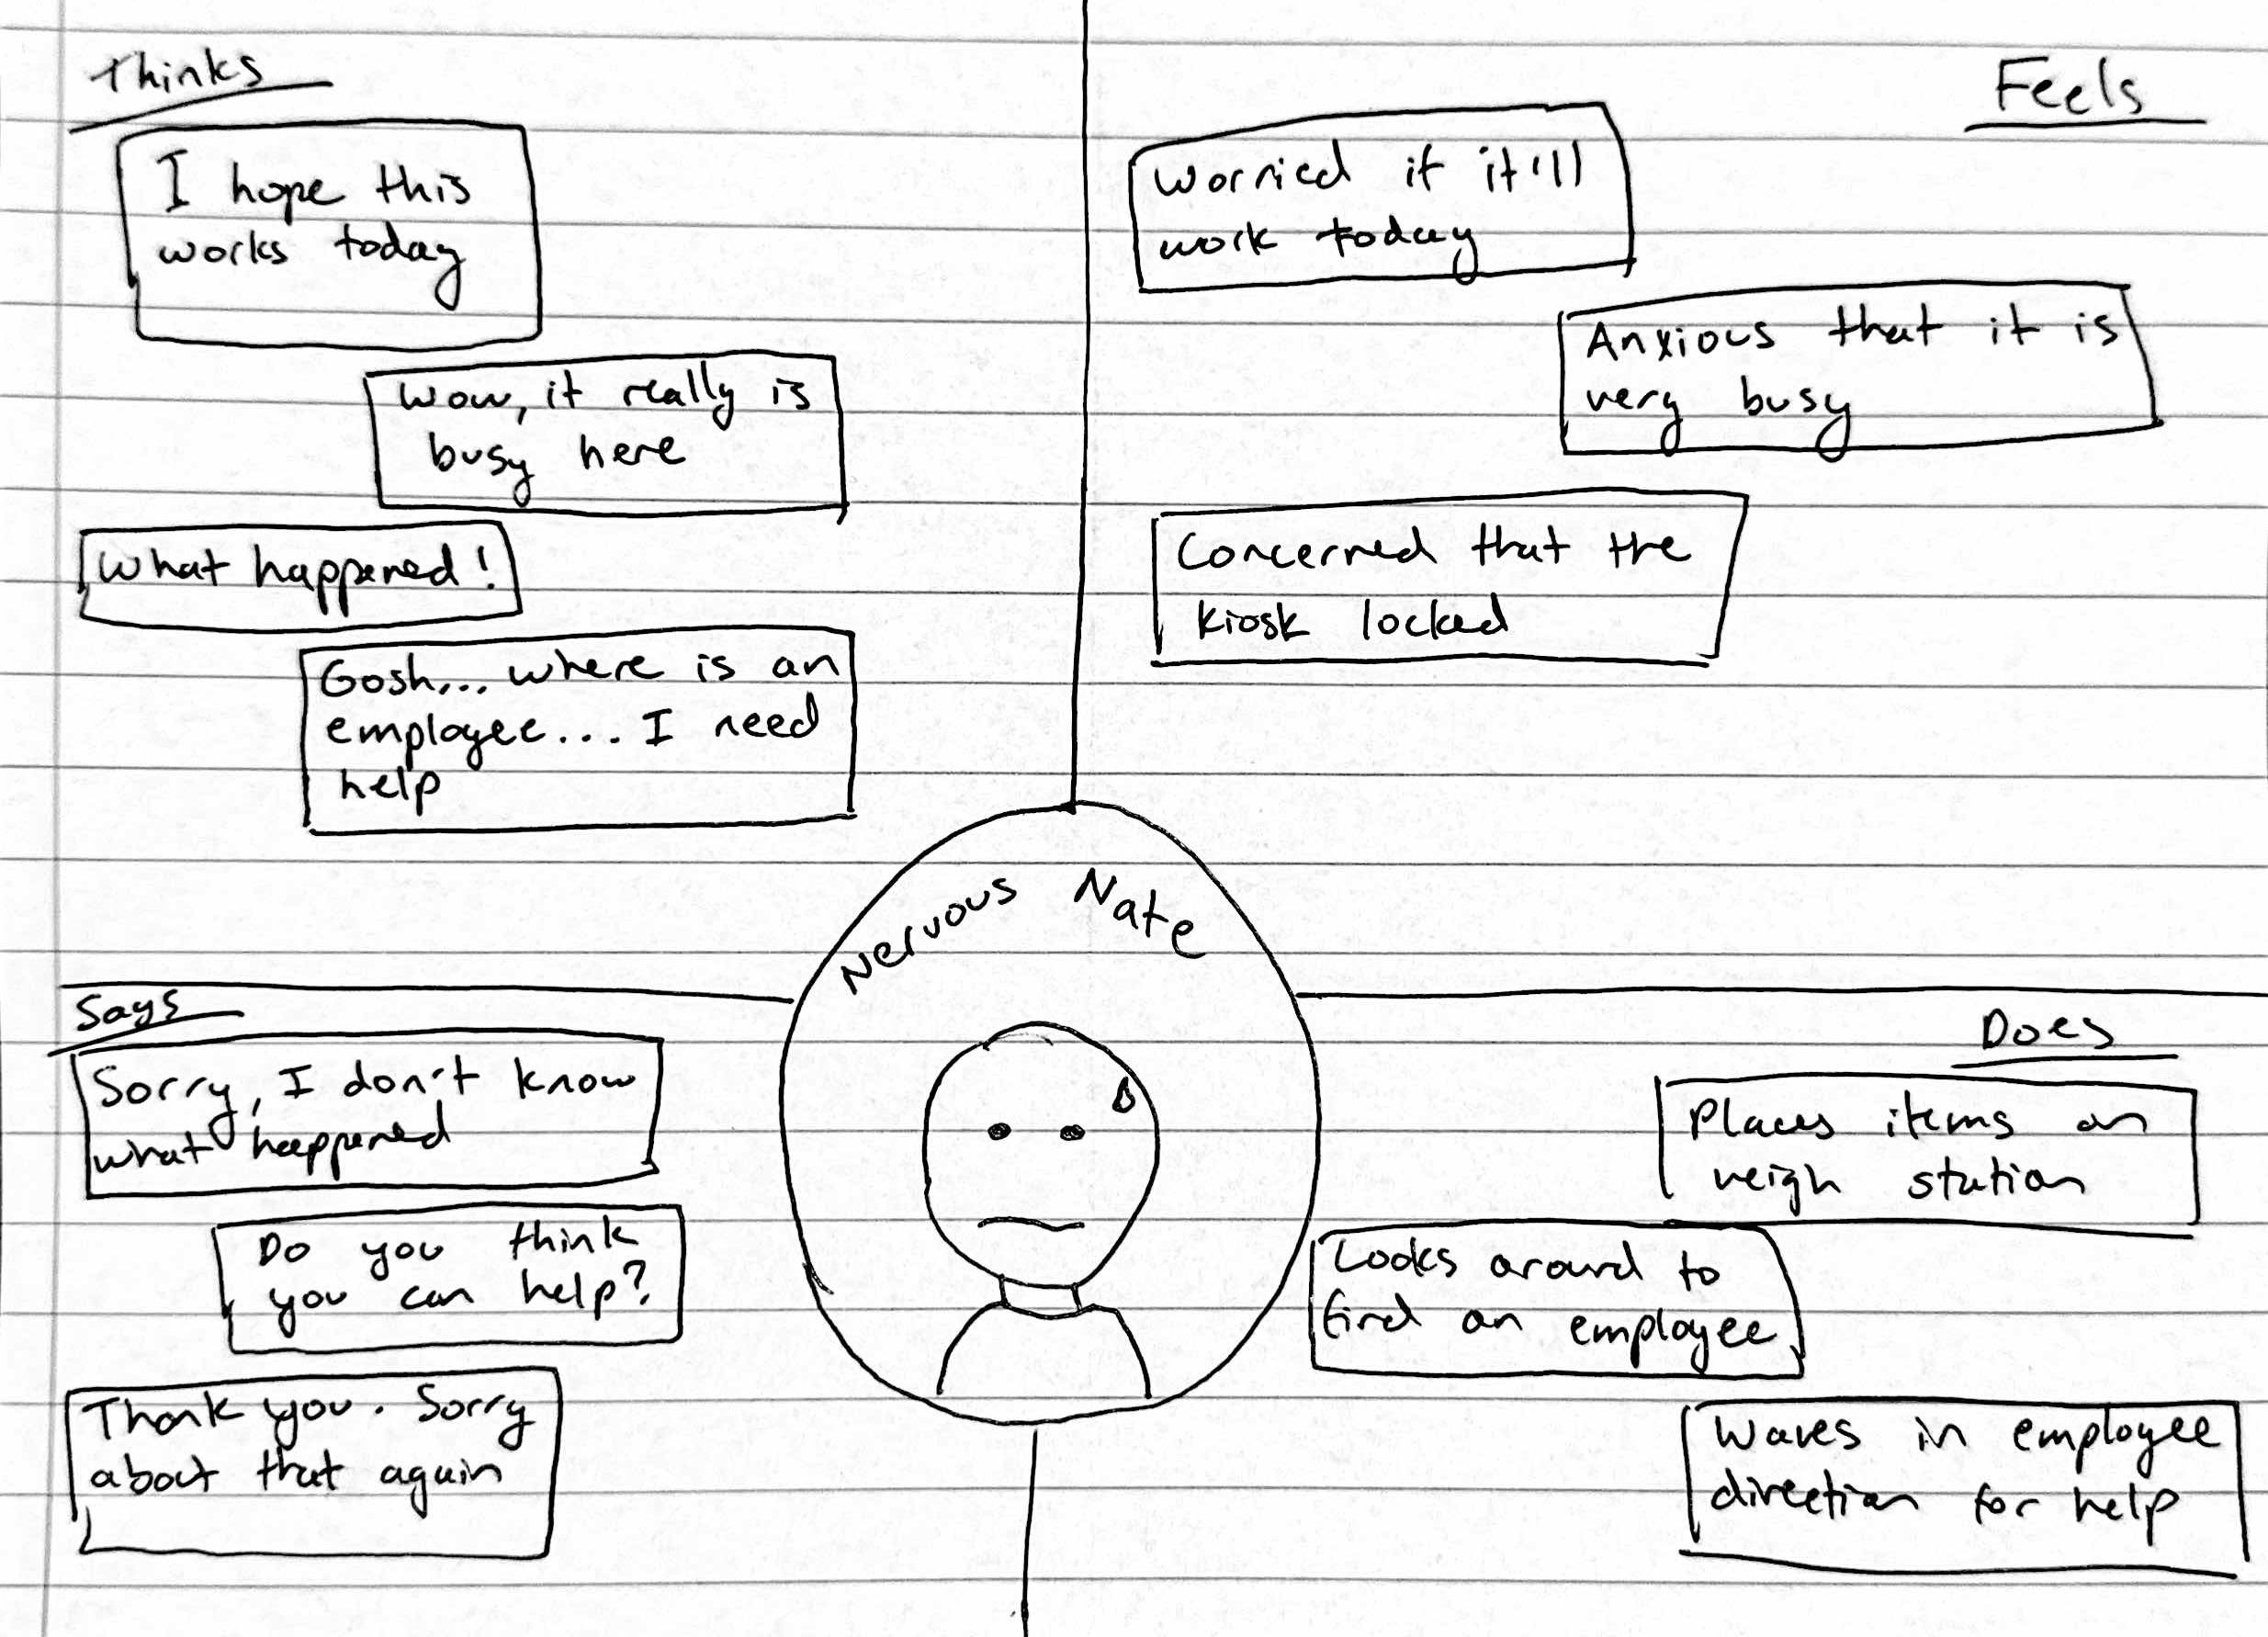 Thinks
I hope this
works today
Wow, it really is
busy here
What happened!
Gosh... where is an
employee... I need
help
Feels
Worried if it'll
work today
Anxious that it is
very busy
Concerned that the
kiosk locked
Nervous Nate
Says
Sorry, I don't know
what happened
Do you think
you can help?
Thank you. Sorry
about that again
Does
Places items on
weigh station
Looks around to
find an employee
Waves in employee
direction for help